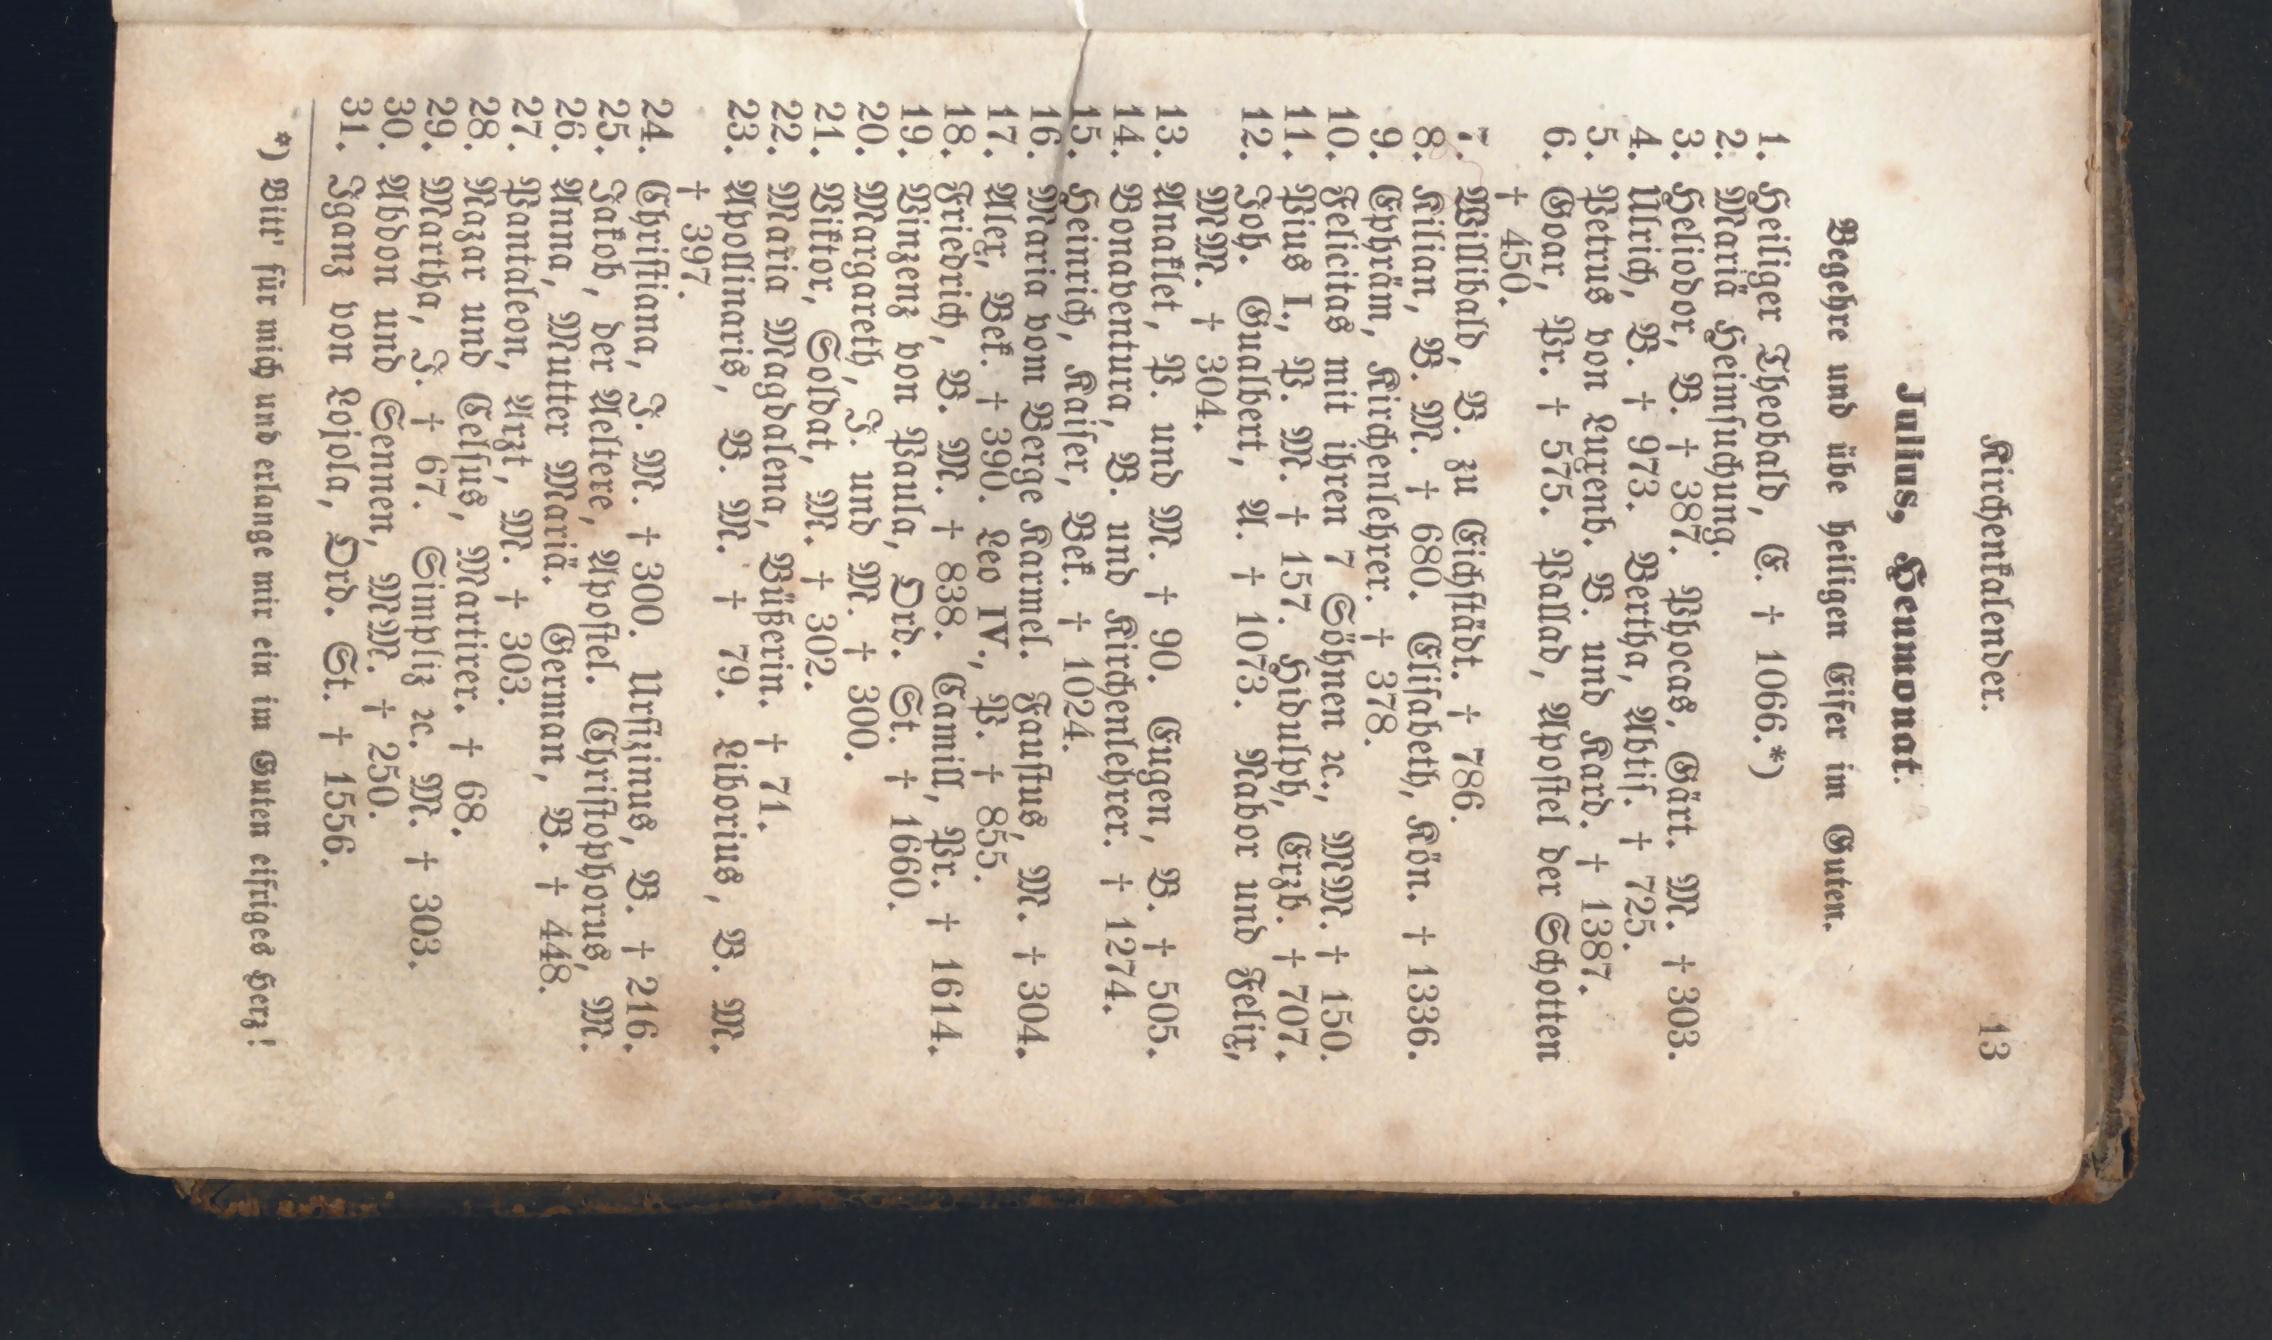 Kirchenkalender. 13
Julius, Heumonat.
Begehre und übe heiligen Eifer im Guten.
1. Heiliger Theobald, E. † 1066.*)
2. Mariä Heimsuchung.
3. Heliodor, B. † 387. Phocas, Gärt. M. † 303.
4. Ulrich, B. † 973. Bertha, Abtis. † 725.
5. Petrus von Luxenb. B. und Kard. † 1387.
6. Goar, Pr. † 575. Pallad, Apostel der Schotten
† 450.
7. Willibald, B. zu Eichstädt. † 786.
8. Kilian, B. M. † 680. Elisabeth, Kön. † 1336.
9. Ephräm, Kirchenlehrer. † 378.
10. Felicitas mit ihren 7 Söhnen ꝛc., MM. † 150.
11. Pius I., P. M. † 157. Hidulph, Erzb. † 707.
12. Joh. Gualbert, A. † 1073. Nabor und Felix,
MM. † 304.
13. Anaklet, P. und M. † 90. Eugen, B. † 505.
14. Bonaventura, B. und Kirchenlehrer. † 1274.
15. Heinrich, Kaiser, Bek. † 1024.
16. Maria vom Berge Karmel. Faustus, M. † 304.
17. Alex, Bek. † 390. Leo IV., P. † 855.
18. Friedrich, B. M. † 838. Camill, Pr. † 1614.
19. Vinzenz von Paula, Ord. St. † 1660.
20. Margareth, J. und M. † 300.
21. Viktor, Soldat, M. † 302.
22. Maria Magdalena, Büßerin. † 71.
23. Apollinaris, B. M. † 79. Liborius, B. M.
† 397.
24. Christiana, J. M. † 300. Ursizinus, B. † 216.
25. Jakob, der Aeltere, Apostel. Christophorus, M.
26. Anna, Mutter Mariä. German, B. † 448.
27. Pantaleon, Arzt, M. † 303.
28. Nazar und Celsus, Martirer. † 68.
29. Martha, J. † 67. Simpliz ꝛc. M. † 303.
30. Abdon und Sennen, MM. † 250.
31. Ignaz von Lojola, Ord. St. † 1556.
*) Bitt' für mich und erlange mir ein im Guten eifriges Herz!